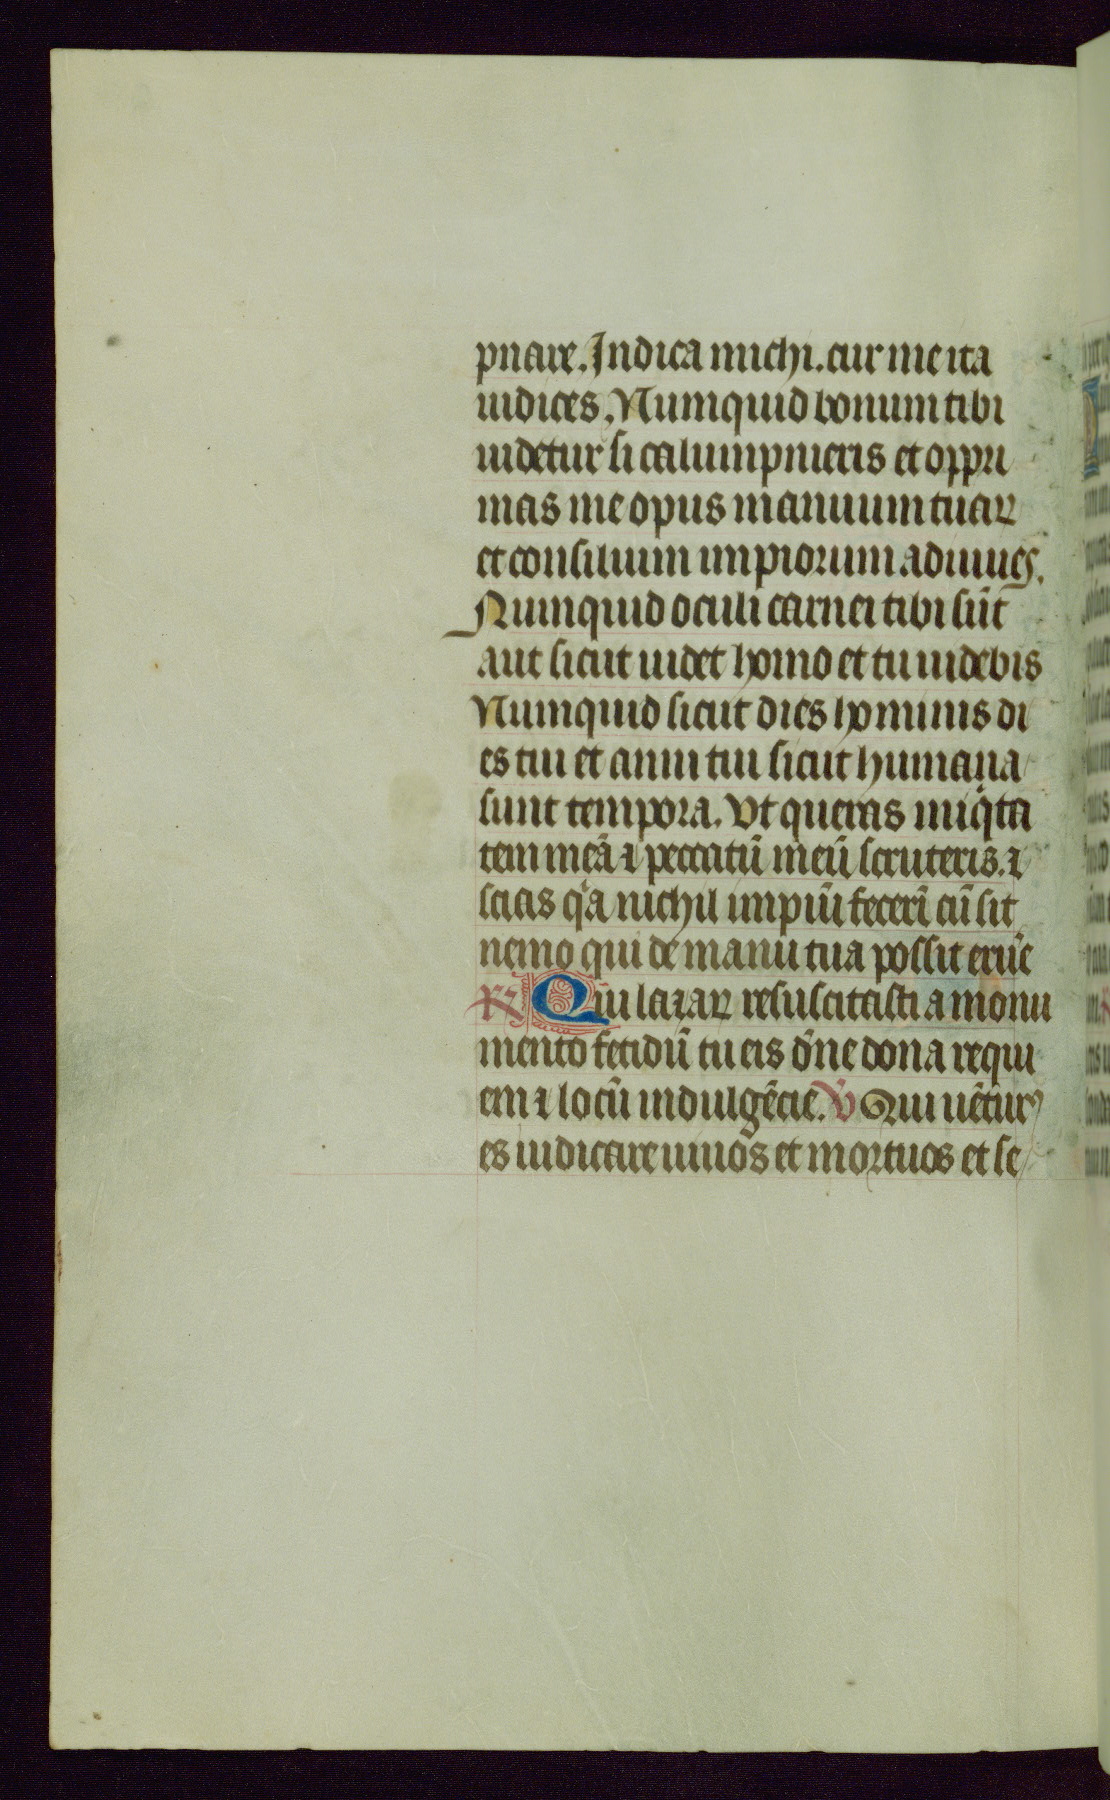 pnare. Indica michi. cur me ita
iudices. Numquid bonum tibi
uidetur si calumpnieris et oppri
mas me opus manuum tuaꝝ
et consilium impiorum adiuues.
Numquid oculi carnei tibi sūt
aut sicut uidet homo et tu uidebis
Numquid sicut dies hominis di
es tui et anni tui sicut humana
sunt tempora. Vt queras iniq̇ta
tem meā ⁊ peccatū meū scruteris. ⁊
scias qͥa nichil impiū fecerī cū sit
nemo qui de manu tua possit erūe
℟ Qui lazaꝝ resuscitasti a monu
mento fetidū tu eis dn̄e dona requi
em ⁊ locū indulgēcie. ℣ Qui uētur᷒
es iudicare uiuos et mortuos et se